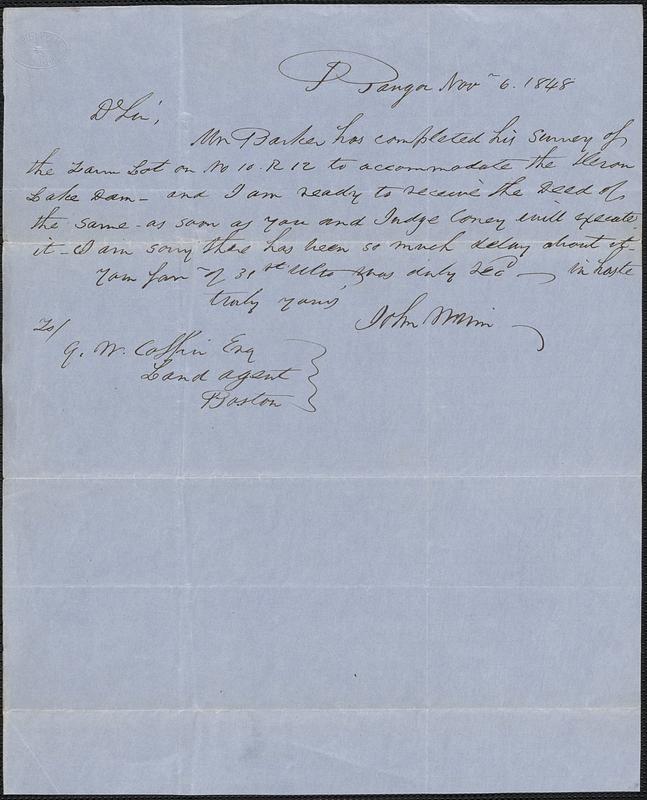 Bangor Novr 6. 1848
Dr Sir,
Mr Barker has completed his survey of
the Farm Lot on No 10. R 12 to accommodate the Heron
Lake Dam - and I am ready to receive the Deed of
the same - as soon as you and Judge Coney will execute
it - I am sorry there has been so much delay about it
Your favr of 31st Ulto was duly Recd - in haste
truly yours,
John
To/
G. W. Coffin Esq
Land agent
Boston